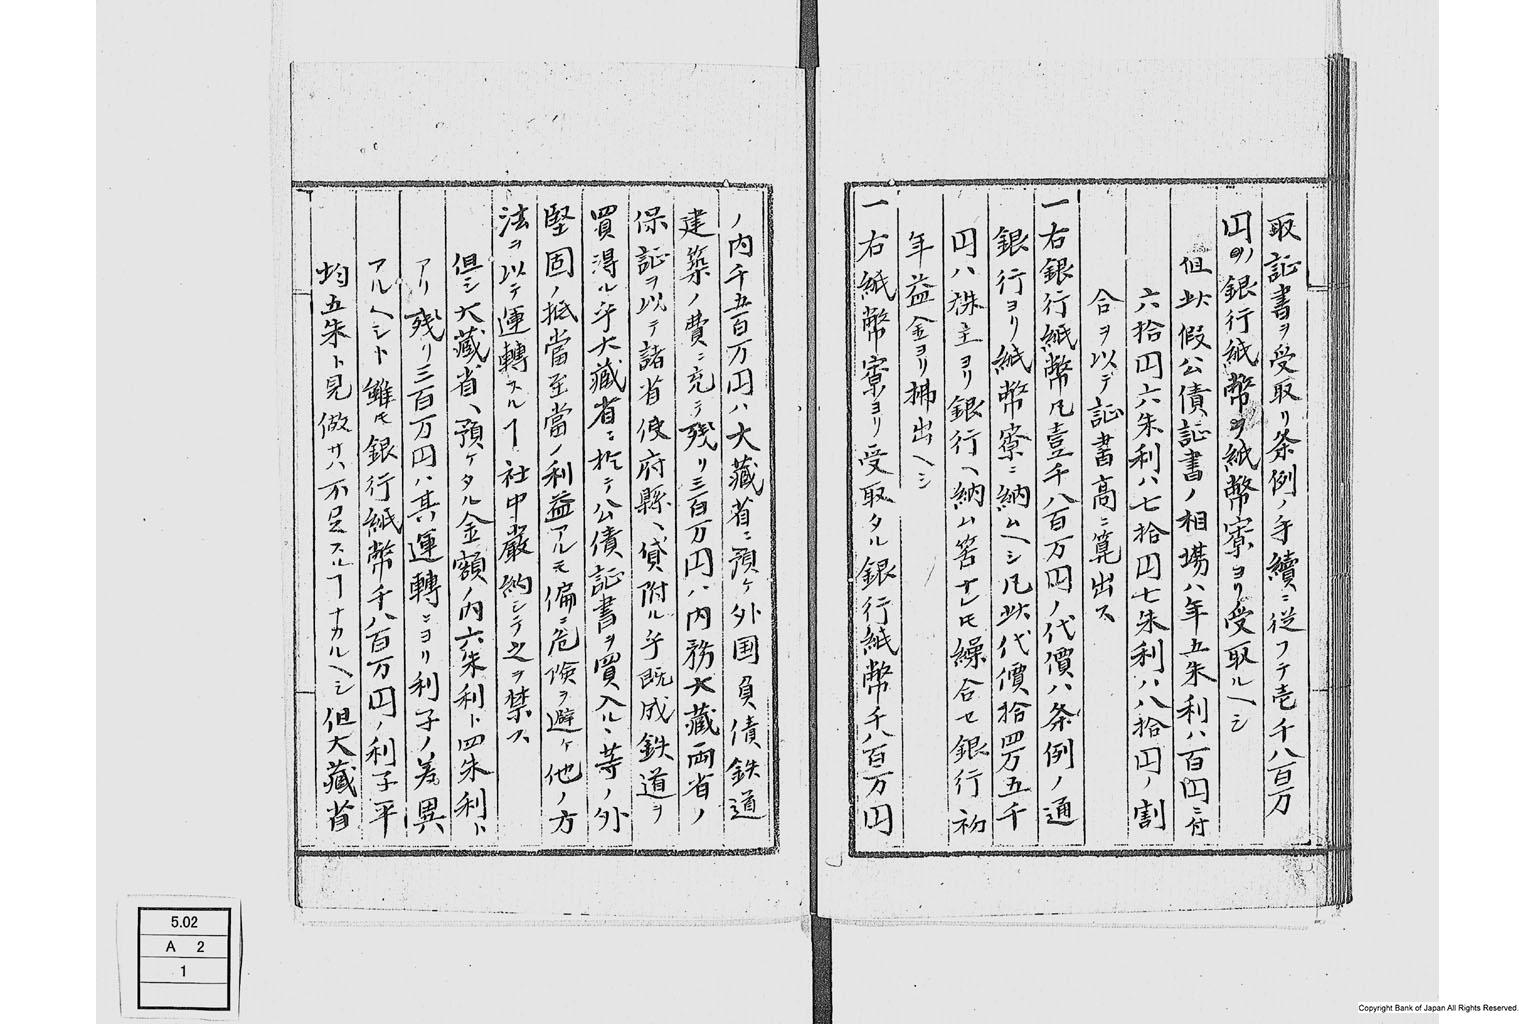 取証書ヲ受取リ条例ノ手續ニ従フテ壱千八百万
円ノ銀行紙幣ヲ紙幣寮ヨリ受取ルヘシ
但此假公債証書ノ相場ハ年五朱利ハ百円ニ付
六拾円六朱利ハ七拾円七朱利ハ八拾円ノ割
合ヲ以テ証書高ニ算出ス
一右銀行紙幣凡壹千八百万円ノ代價ハ条例ノ通
銀行ヨリ紙幣寮ニ納ムヘシ凡此代價拾四万五千
円ハ株主ヨリ銀行ヘ納ム筈ナレモ繰合セ銀行初
年益金ヨリ拂出ヘシ
一右紙幣寮ヨリ受取タル銀行紙幣千八百万円
ノ内千五百万円ハ大藏省ニ預ケ外国負債鉄道
建築ノ費ニ充テ残リ三百万円ハ内務大藏両省ノ
保証ヲ以テ諸省使府縣ヘ貸附ル乎既成鉄道ヲ
買得ル乎大藏省ニ於テ公債証書ヲ買入ル等ノ外
堅固ノ抵當至當ノ利益アルモ偏ニ危険ヲ避ケ他ノ方
法ヲ以テ運轉スルヿ社中嚴約シテ之ヲ禁ス
但シ大藏省ヘ預ケタル金額ノ内六朱利ト四朱利ト
アリ残リ三百万円ハ其運轉ニヨリ利子ノ差異
アルヘシト雖モ銀行紙幣千八百万円ノ利子平
均五朱ト見做サハ不足スルヿナカルヘシ但大藏省
5.02
A 2
1
Copyright Bank of Japan All Rights Reserved.